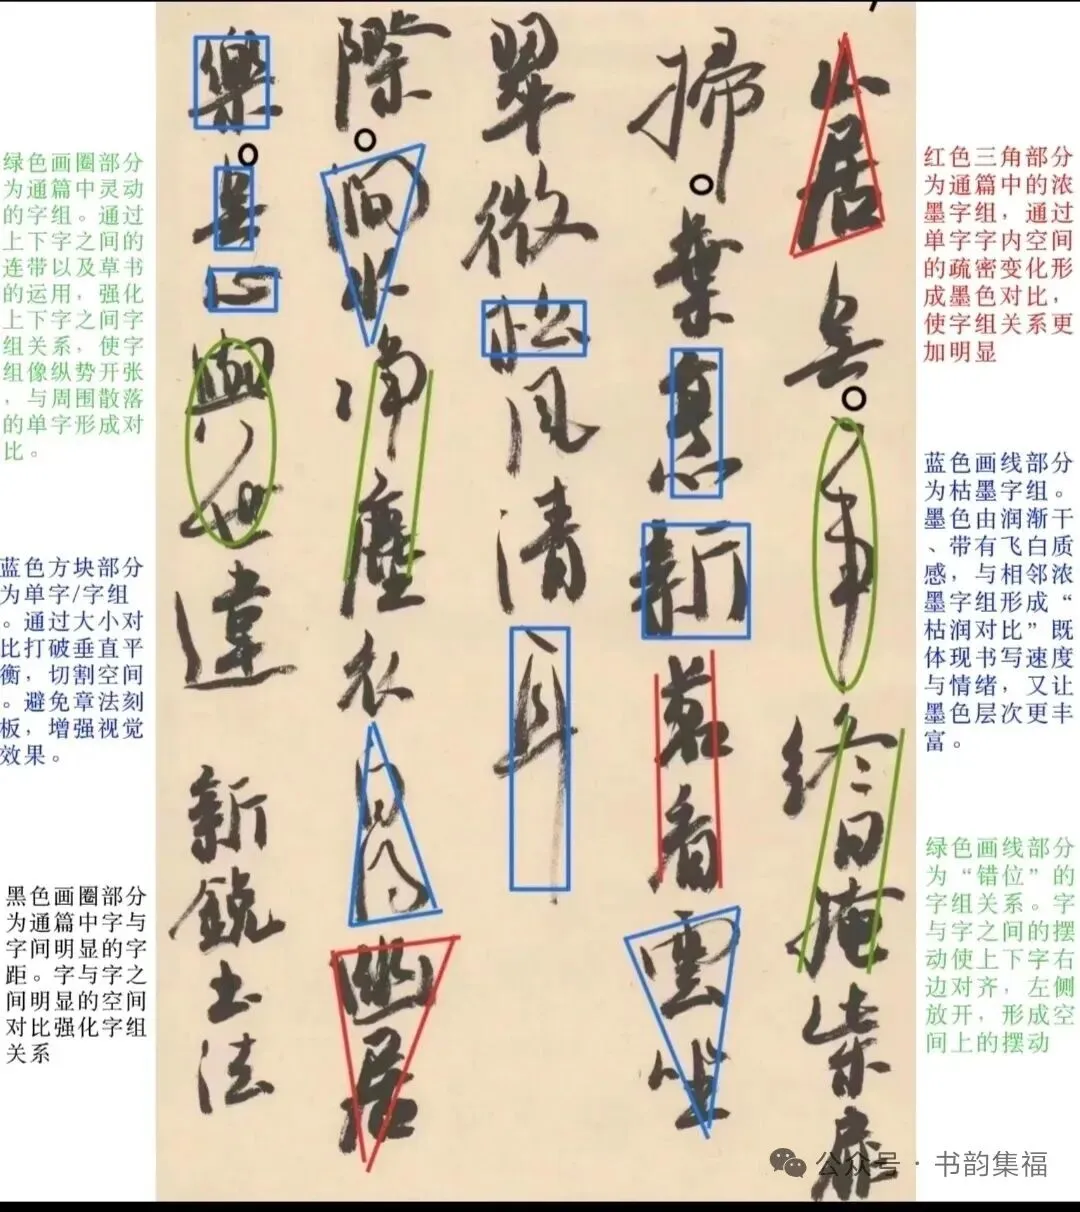 山居無一事終日掩柴扉
掃葉烹新茗看雲坐
翠微松風清耳
際澗水淨塵衣幽居
樂心與世違
新銳书法
绿色画圈部分
为通篇中灵动
的字组。通过
上下字之间的
连带以及草书
的运用，强化
上下字之间字
组关系，使字
组像纵势开张
，与周围散落
的单字形成对
比。
蓝色方块部分
为单字/字组
。通过大小对
比打破垂直平
衡，切割空间
。避免章法刻
板，增强视觉
效果。
黑色画圈部分
为通篇中字与
字间明显的字
距。字与字之
间明显的空间
对比强化字组
关系
红色三角部分
为通篇中的浓
墨字组，通过
单字字内空间
的疏密变化形
成墨色对比，
使字组关系更
加明显
蓝色画线部分
为枯墨字组。
墨色由润渐干
、带有飞白质
感，与相邻浓
墨字组形成“
枯润对比”既
体现书写速度
与情绪，又让
墨色层次更丰
富。
绿色画线部分
为“错位”的
字组关系。字
与字之间的摆
动使上下字右
边对齐，左侧
放开，形成空
间上的摆动
公众号·书韵集福